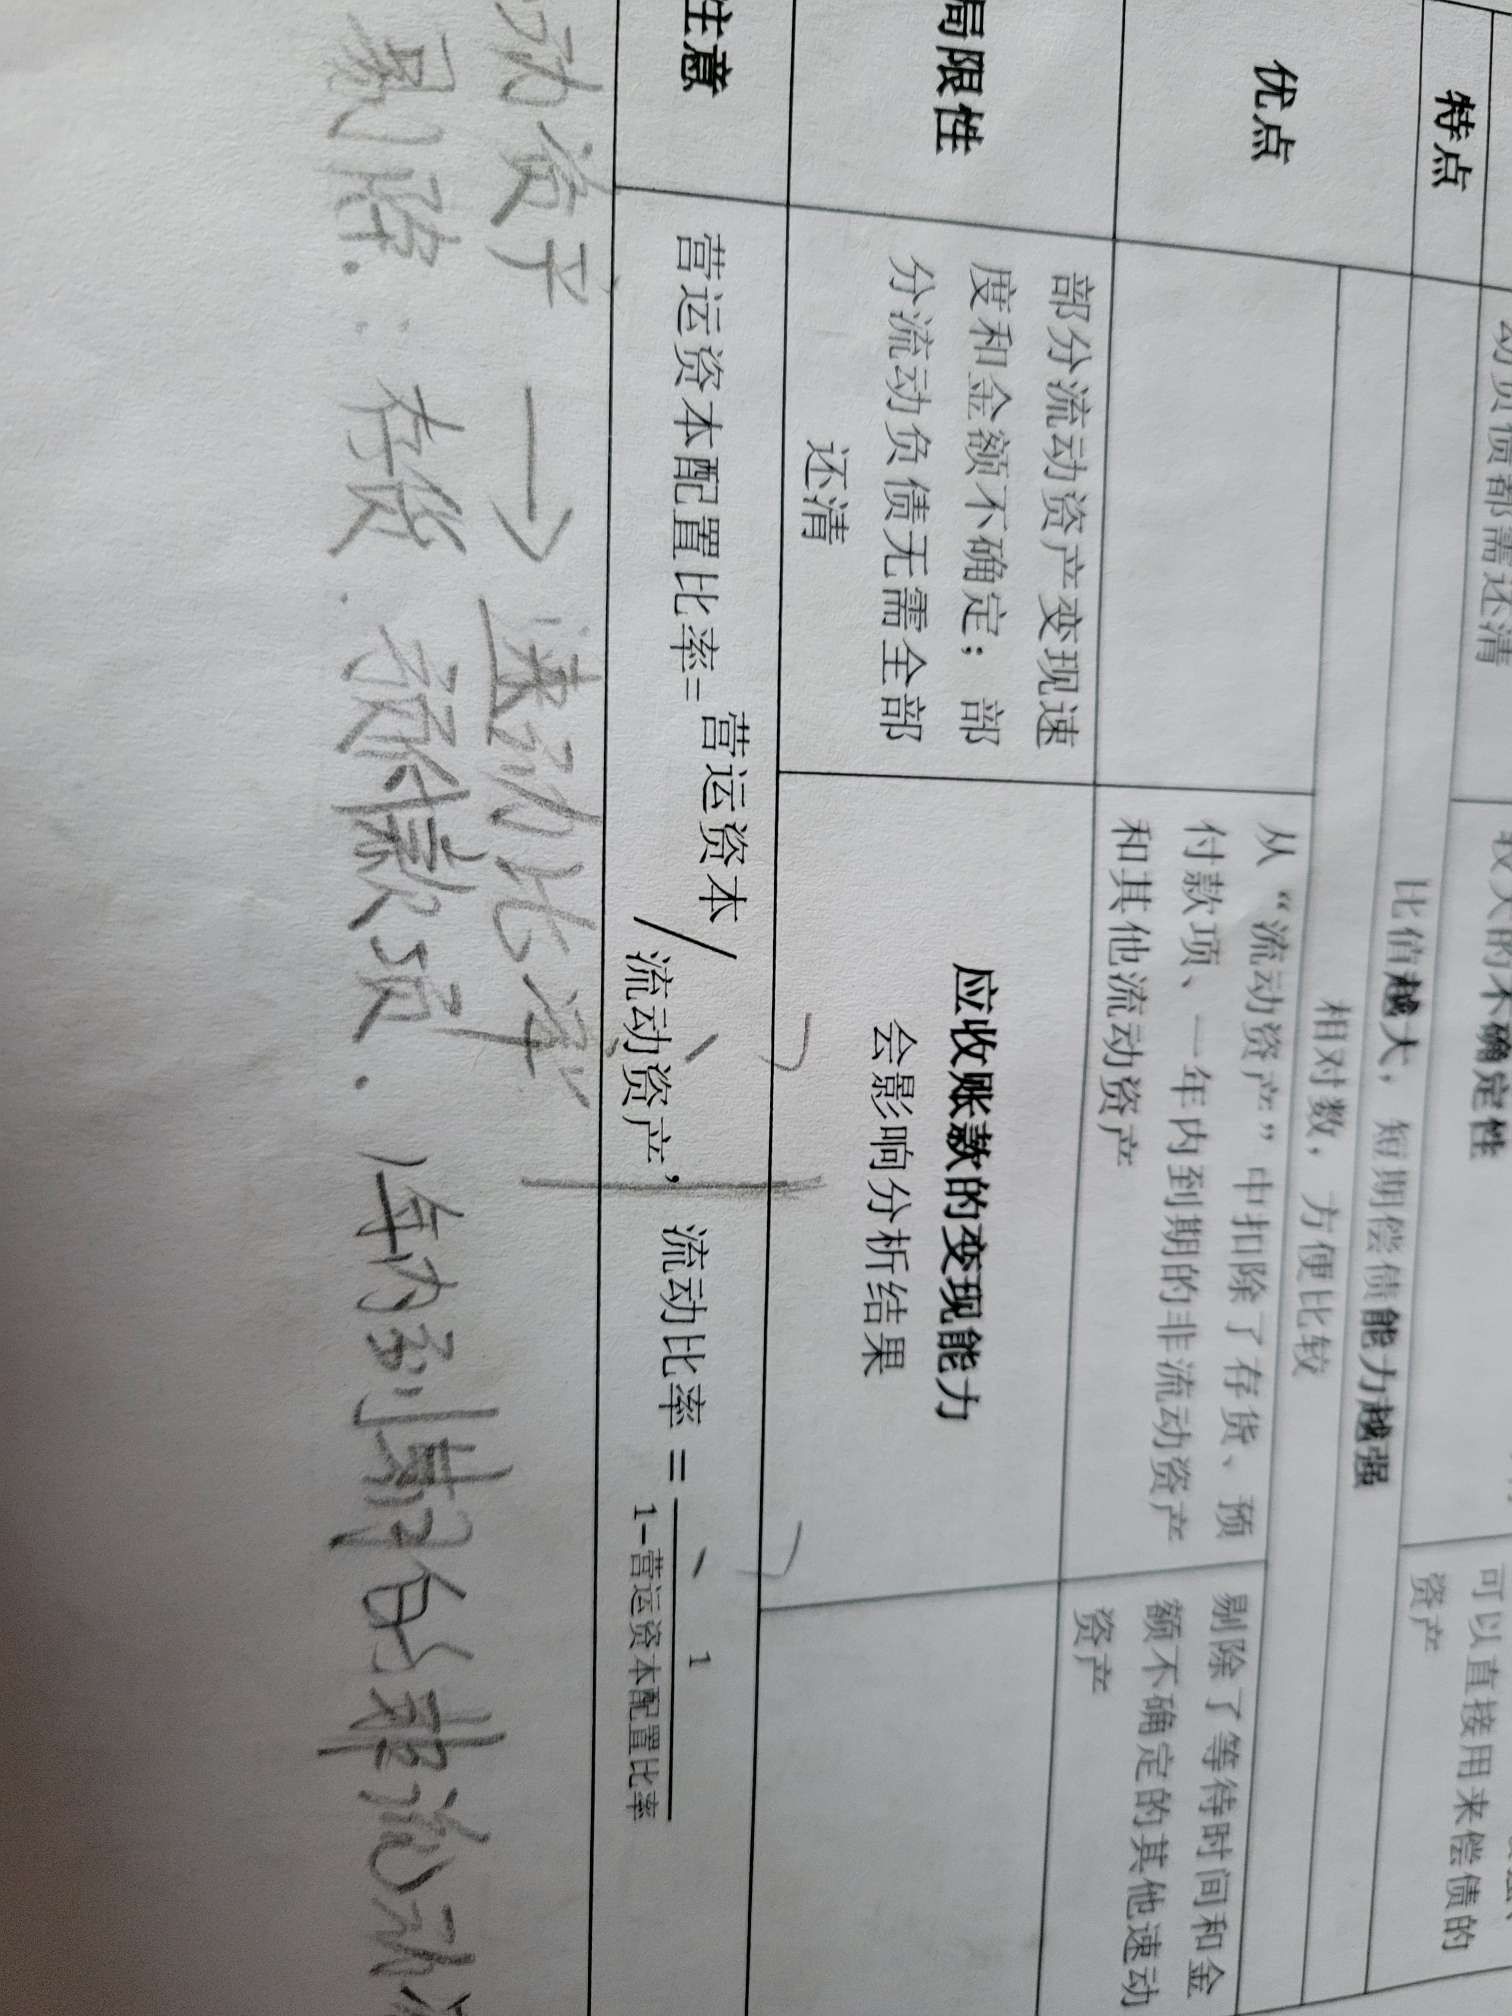 动负债都需还清
较大的不确定性
可以直接用来偿债的
资产
特点
比值越大，短期偿债能力越强
优点
相对数，方便比较
从“流动资产”中扣除了存货、预
付款项、一年内到期的非流动资产
和其他流动资产
剔除了等待时间和金
额不确定的其他速动
资产
局限性
部分流动资产变现速
度和金额不确定；部
分流动负债无需全部
还清
应收账款的变现能力
会影响分析结果
注意
营运资本配置比率=营运资本/流动资产，流动比率=1/1-营运资本配置比率
动资产 → 速动比率
剔除：存货．预付款项．1年内到期的非流动